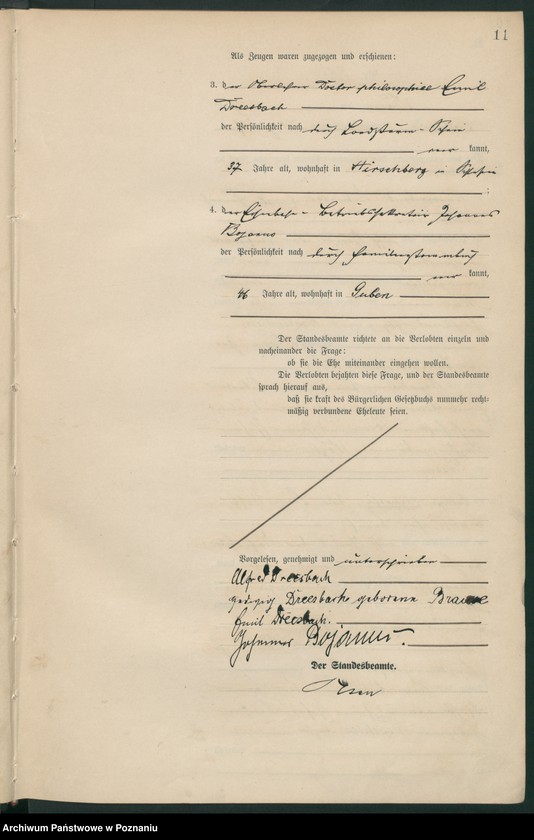 11
Als Zeugen waren zugezogen und erschienen:
3. der Oberlehrer Doctor philosophiae Emil
Dreesbach
der Persönlichkeit nach durch Landsturm-Schein
kannt,
37 Jahre alt, wohnhaft in Hirschberg in Schlesien
;
4. der Eisenbahn-Betriebssekretär Johannes
Bojanus
der Persönlichkeit nach durch Familienstammbuch
kannt,
46 Jahre alt, wohnhaft in Guben
Der Standesbeamte richtete an die Verlobten einzeln und
nacheinander die Frage:
ob sie die Ehe miteinander eingehen wollen.
Die Verlobten bejahten diese Frage, und der Standesbeamte
sprach hierauf aus,
daß sie kraft des Bürgerlichen Gesetzbuchs nunmehr recht-
mäßig verbundene Eheleute seien.
Vorgelesen, genehmigt und unterschrieben
Alfred Dreesbach
Dreesbach geborene
Emil Dreesbach.
Johannes Bojanus.
Der Standesbeamte.
Archiwum Państwowe w Poznaniu